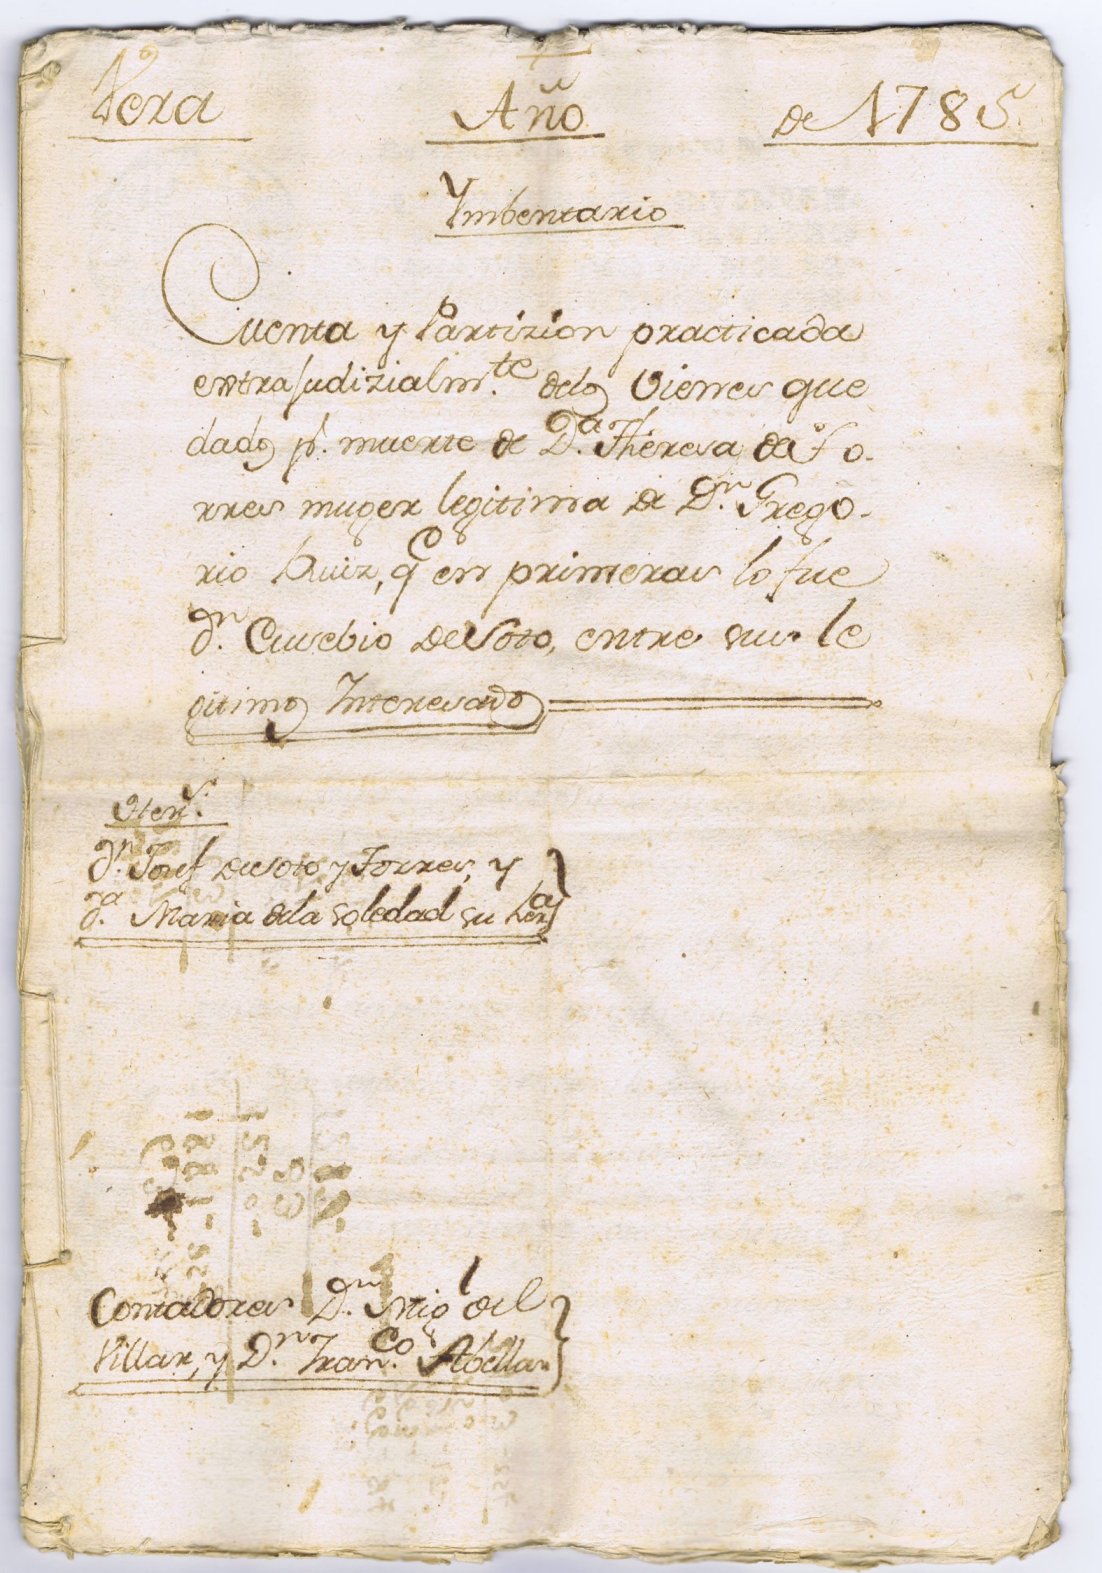 Vera Año de 1785
Ymbentario
Cuenta y Partizion practicada
extrajudizialm.te delos Vienes que
dados p.r muerte de D.a Theresa de To-
rres muger legitima de D.n Grego-
rio Ruiz, q.e en primeras lo fue
d.n Eusebio de Soto, entre sus le
gitimos Interesados
Yten.s
d.n Josef de Soto y Torres, y
d.a Maria dela Soledad su her.a
Contadores D.n Mig.l del
Villar, y D.n Fran.co Abellan